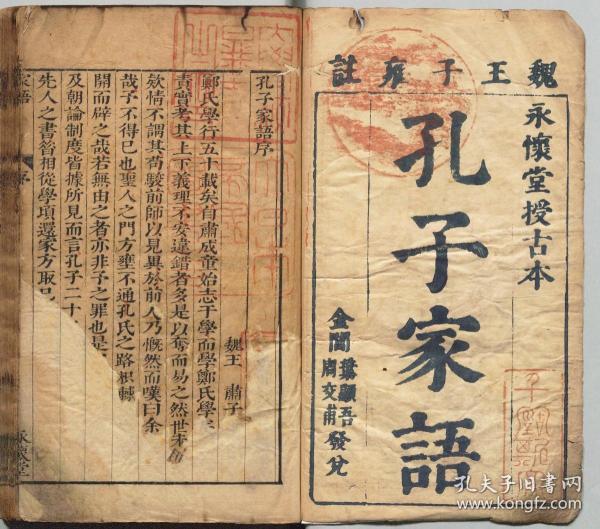 魏王子雍註
永懷堂授古本
孔子家語
金閶龔顧吾
周交甫
發兌
孔子家語序
魏王 肅子
鄭氏學行五十載矣自肅成童始志于學而學鄭氏學
責實考其上下義理不安違錯者多是以奪而易之然世未
欵情不謂其苟駮前師以見異於前人乃慨然而嘆曰余
哉予不得已也聖人之門方壅不通孔氏之路枳棘
開而辟之哉若無由之者亦非予之罪也是
及朝論制度皆據所見而言孔子二十
先人之書昔相從學頃還家方取已
家語
序
永懷堂
孔夫子旧书网
book.kongfz.com